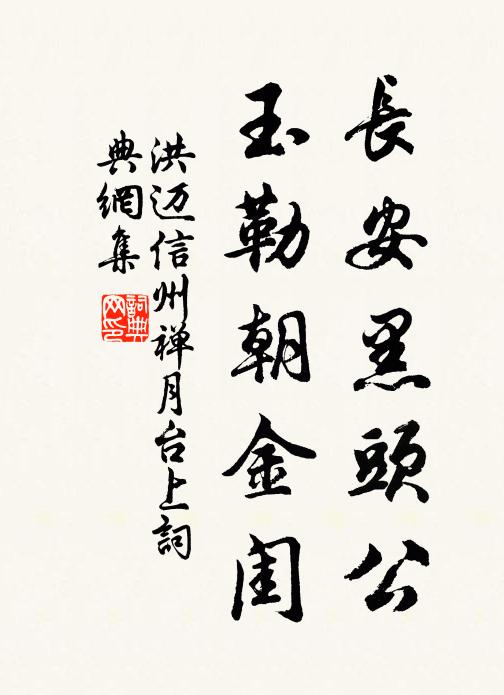 長安黑頭公
玉勒朝金闺
洪迈信州禅月台上詞
典網集
詞典网印